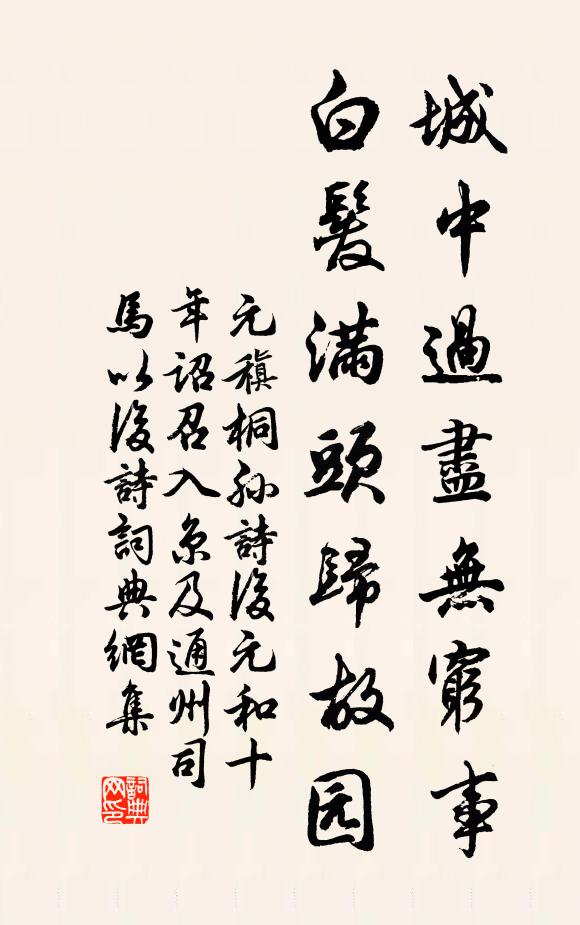 城中過盡無窮事
白髮滿頭歸故园
元稹桐孙詩後元和十
年詔召入京及通州司
馬以後詩詞典網集
詞典
网印